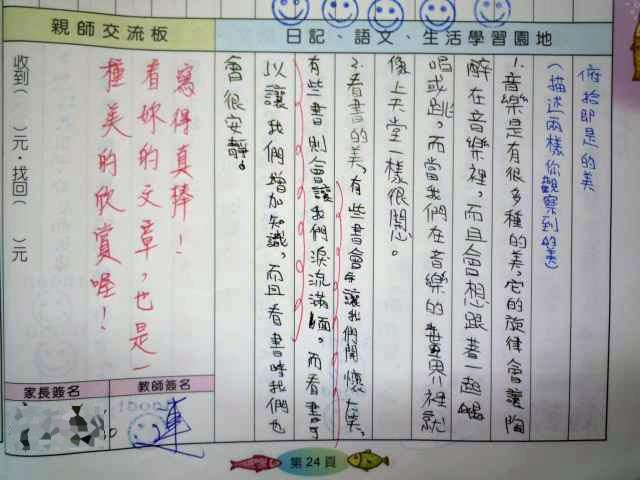 日記、語文、生活學習園地
俯拾即是的美
(描述兩樣你觀察到的美)
1.音樂是有很多種的美,它的旋律會讓陶
醉在音樂裡,而且會想跟著一起
唱或跳,而當我們在音樂的世界裡就
像上天堂一樣很開心。
2.看書的美,有些書會讓我們開懷大笑,
有些書則會讓我們淚流滿面。而看書可
以讓我們增加知識,而且看書時我們也
會很安靜。
親師交流板
寫得真棒!
看妳的文章,也是一
種美的欣賞喔!
收到( )元.找回( )元
教師簽名
家長簽名
第24頁